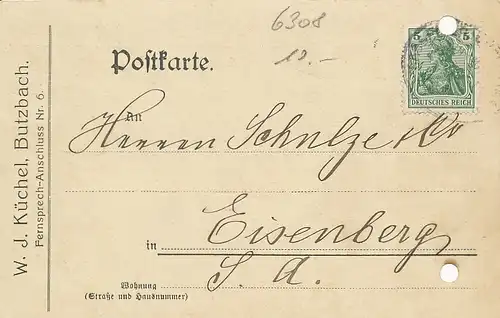 6308
10.-
Postkarte.
5 5
DEUTSCHES REICH
An
Herren Schulze & Co
in Eisenberg
S. A.
Wohnung
(Straße und Hausnummer)
W. J. Küchel, Butzbach.
Fernsprech-Anschluss Nr. 6.